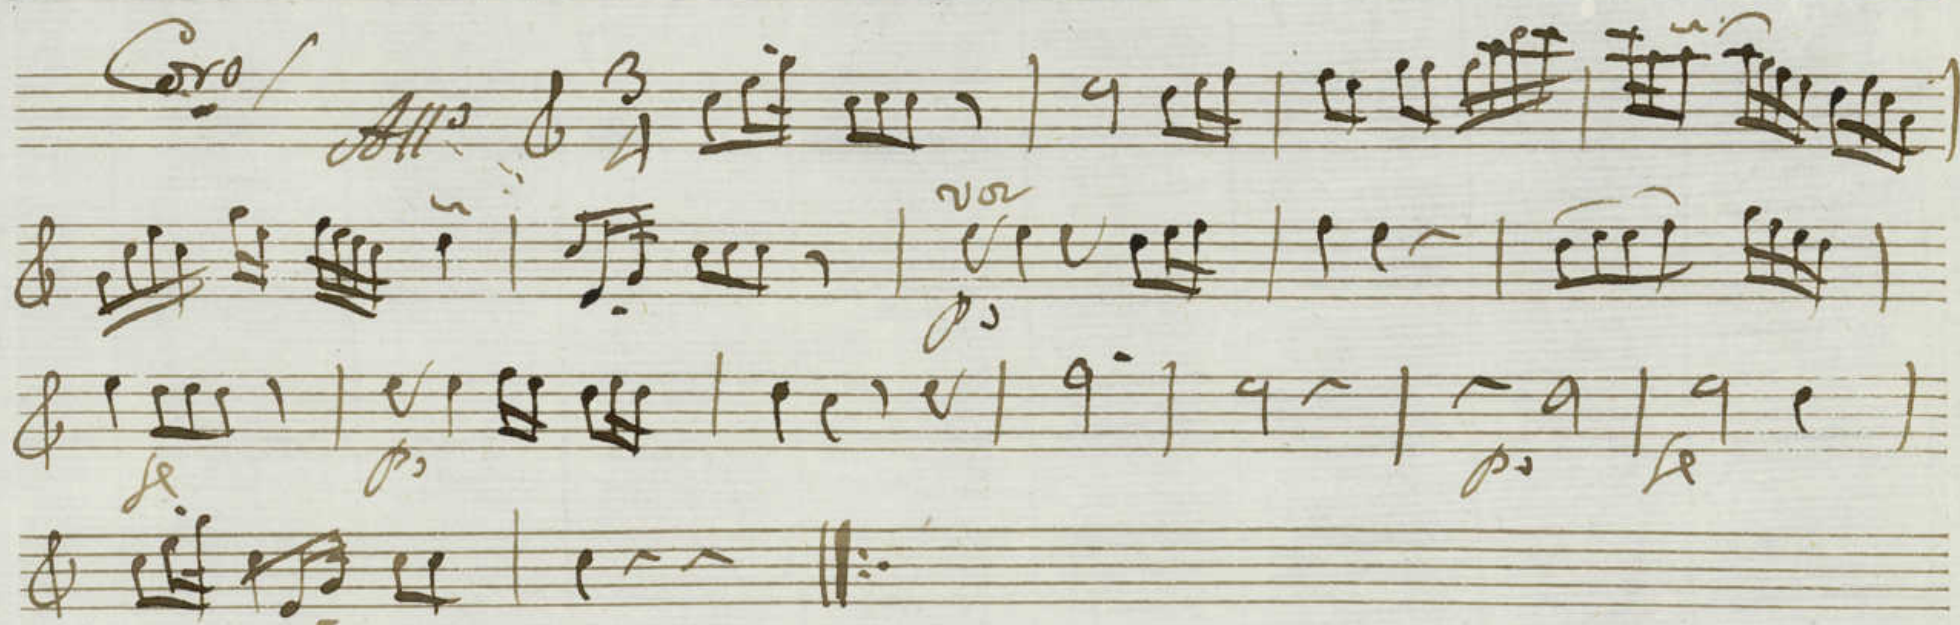 Coro
Allo 3 4
voz
po
fe po po fe